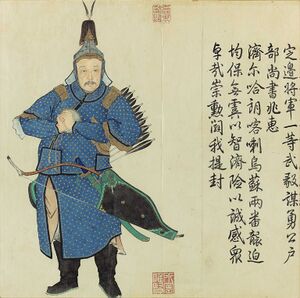 定邊將軍一等武毅謀勇公戶
部尚書兆惠
濟尔哈朗喀喇烏蘇兩番
迫
均保無虞以智濟險以誠感眾
卓哉崇勲闢我提封